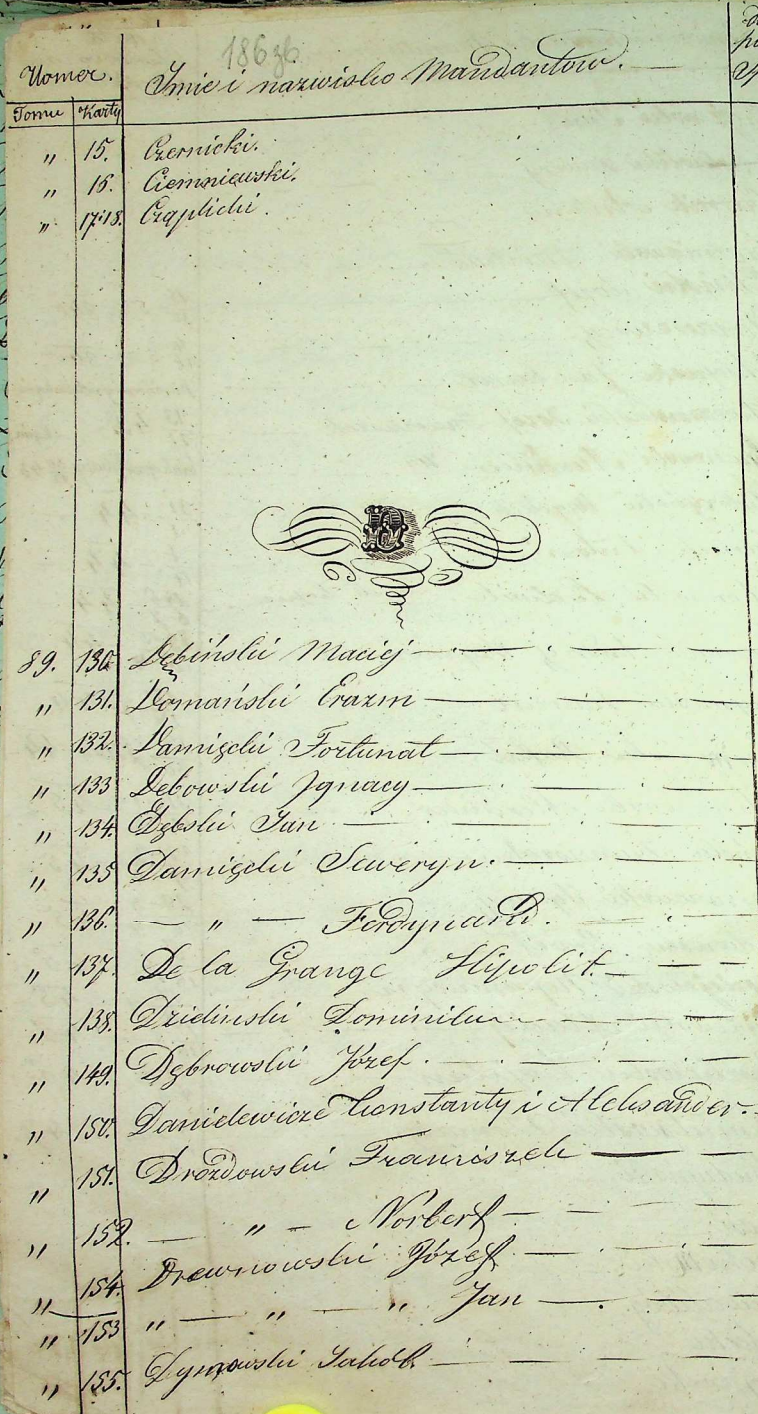 186
Nomer.
Imie i nazwisko Mandantow. —
Tomu Karty
" 15. Czernicki.
" 16. Ciemniewski.
" 17.18. Czaplicki.
D
89. 130 Dębiński Maciej
" 131. Domański Erazm
" 132. Damięcki Fortunat
" 133 Dębowski Ignacy
" 134. Dębski Jan
" 135 Damięcki Seweryn.
" 136. — " — Ferdynand.
" 137. De la Grange Hipolit
" 138. Dominik
" 149. Dąbrowski Józef.
" 150. Danielewicze Constanty i Aleksander.
" 151. Drozdowski Franciszek
" 152. — " — Norbert
" 154. Drewnowski Józef
" 153 " — " — " Jan
" 155. Dymowski Jakób.